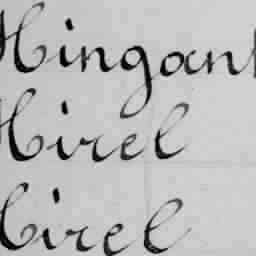 Hingant
Hirel
Hirel